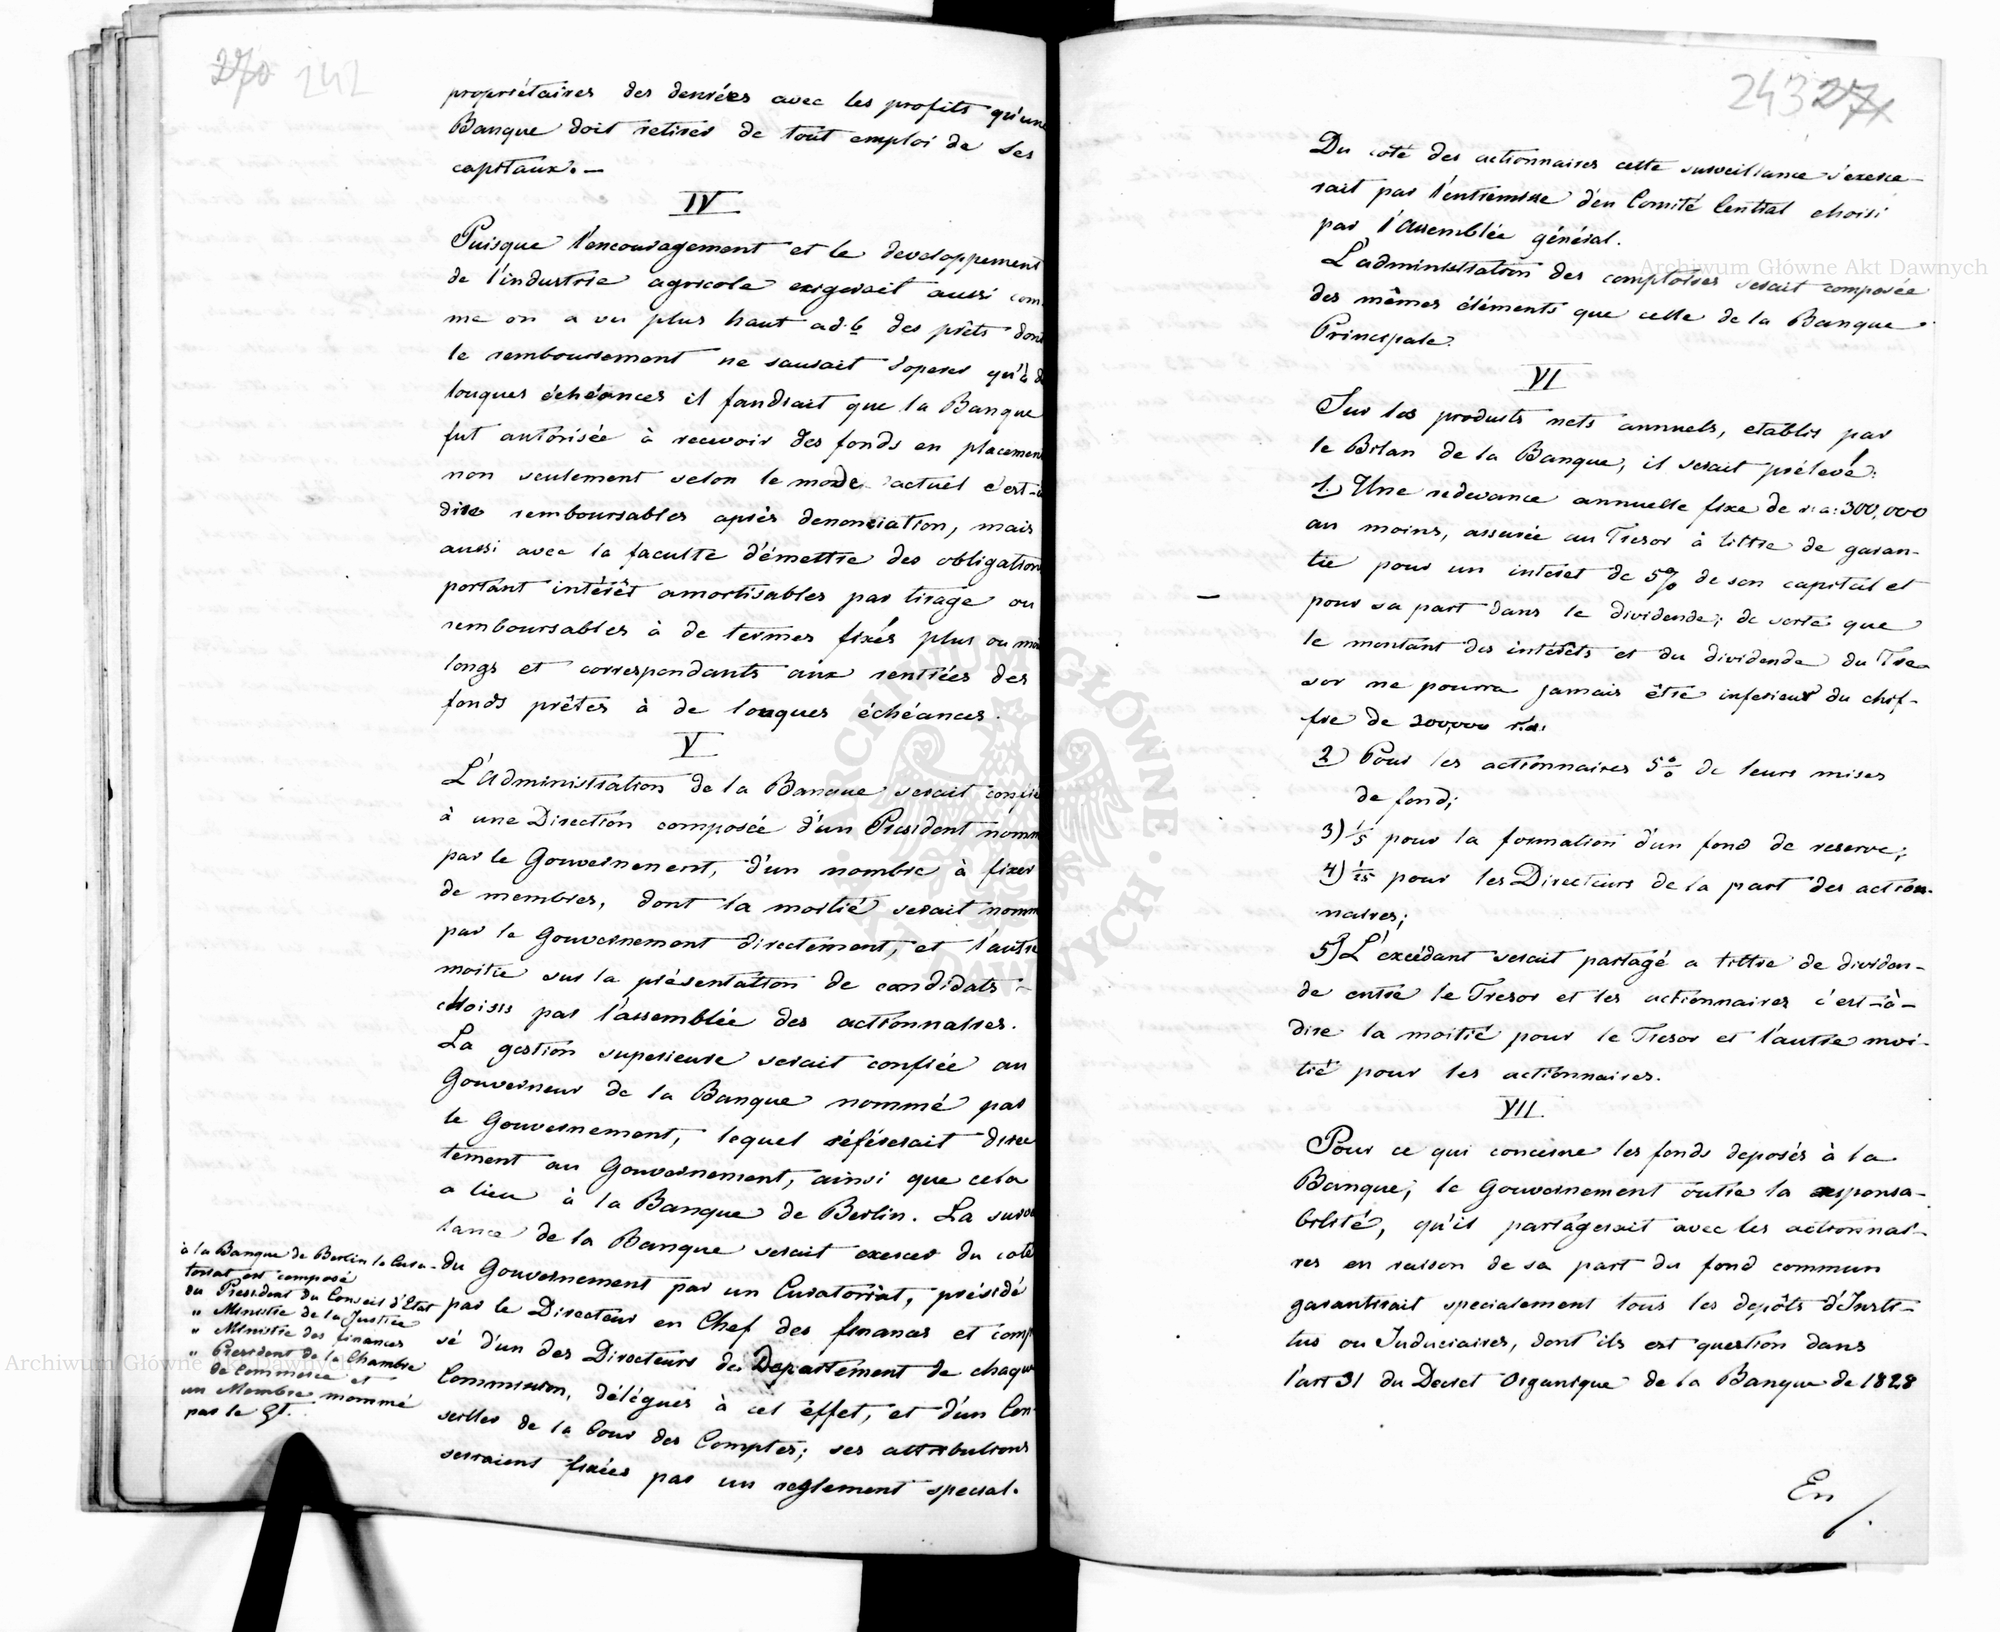 270 242
propriétaires des denrées avec les profits qu'une
Banque doit retirer de tout emploi de ses
capitaux. —
IV
Puisque l'encouragement et le developpement
de l'industrie agricole exigerait aussi com
me on a vu plus haut ad. b des prêts dont
le remboursement ne saurait s'operer qu'à de
longues échéances il faudrait que la Banque
fut autorisée à recevoir des fonds en placement
non seulement selon le mode actuel c'est-à
dire remboursables après denonciation, mais
aussi avec la faculté d'émettre des obligations
portant intérêt amortisables par tirage ou
remboursables à de termes fixés plus ou moi
longs et correspondants aux rentrées des
fonds prêtés à de longues échéances.
V
L'administration de la Banque serait confiée
à une Direction composée d'un President nomm
par le Gouvernement, d'un nombre à fixer
de membres, dont la moitié serait nomm
par le Gouvernement directement, et l'autre
moitie sur la présentation de candidats
choisis par l'assemblée des actionnaires.
La gestion superieure serait confiée au
Gouverneur de la Banque nommé par
le Gouvernement, lequel référerait direc
tement au Gouvernement, ainsi que cela
a lieu à la Banque de Berlin. La survei
lance de la Banque serait exercer du coté
du Gouvernement par un Curatoriat, présidé
par le Directeur en Chef des finances et comp
sé d'un des Directeurs de Departement de chaque
Commission, délégués à cet éffet, et d'un Con
seiller de la Cour des Comptes; ses attributions
serraient fixées par un reglement special.
à la Banque de Berlin le Cura-
toriat est composé
du President du Conseil d'Etat
" Ministre de la Justice
" Ministre des finances
" President de la Chambre
de Commerce et
un Membre nommé
par le Gt.
243 271
Du coté des actionnaires cette surveillance s'exerce-
rait par l'entremisse d'un Comité Central choisi
par l'Assemblée général.
L'administration des comptoirs serait composée
des mêmes éléments que celle de la Banque
Principale.
VI
Sur les produits nets annuels, etablis par
le Bilan de la Banque, il serait prélevé:
1.) Une redevance annuelle fixe de r: a: 300,000
au moins, assurée au Tresor à tittre de garan-
tie pour un intéret de 5% de son capital et
pour sa part dans le dividende; de sorte que
le montant des intérêts et du dividende du Tre-
sor ne pourra jamais être inferieur du chif-
fre de 300,000 r.a.
2) Pour les actionnaires 5% de leurs mises
de fond;
3) 1/5 pour la formation d'un fond de reserve;
4) 1/25 pour les Directeurs de la part des action-
naires;
5) L'excédant serait partagé a tittre de dividen-
de entre le Tresor et les actionnaires c'est-à-
dire la moitié pour le Tresor et l'autre moi-
tié pour les actionnaires.
VII.
Pour ce qui concerne les fonds deposés à la
Banque; le Gouvernement outre la responsa-
bilité, qu'il partagerait avec les actionnai-
res en raison de sa part du fond commun
garantirait specialement tous les depôts d'Insti-
tus ou Juduciaires, dont ils est question dans
l'art 31 du Decret Organique de la Banque de 1828
En
Archiwum Główne Akt Dawnych
Archiwum Główne Akt Dawnych
ARCHIWUM GŁÓWNE AKT DAWNYCH